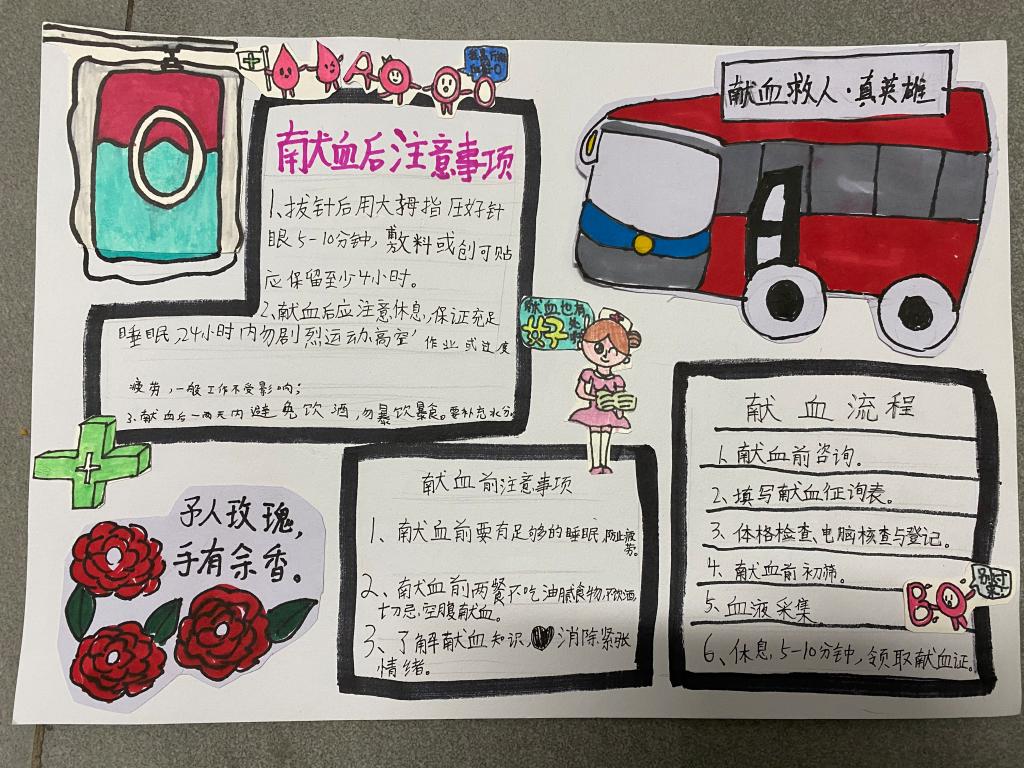 献血后注意事项
1、拔针后用大拇指压好针
眼5-10分钟,敷料或创可贴
应保留至少4小时。
2、献血后应注意休息,保证充足
睡眠,24小时内勿剧烈运动高空
作业或过度
疲劳,一般工作不受影响;
3、献血后一两天内避免饮酒,勿暴饮暴食。要补充水分。
献血救人·真英雄
献血也有
女子
予人玫瑰,
手有余香。
献血前注意事项
1、献血前要有足够的睡眠,防止疲
劳。
2、献血前两餐不吃油腻食物,不饮酒,
切忌空腹献血。
3、了解献血知识,消除紧张
情绪。
献血流程
1、献血前咨询。
2、填写献血征询表。
3、体格检查、电脑核查与登记。
4、献血前初筛。
5、血液采集
6、休息,5-10分钟,领取献血证。
B